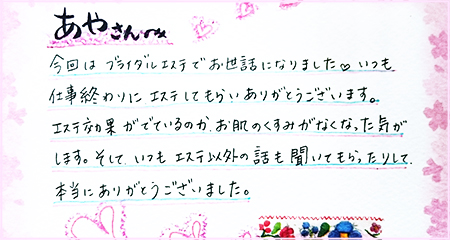 あやさんへ
今回は ブライダルエステで お世話になりました♡ いつも
仕事終わりに エステしてもらい ありがとうございます。
エステ効果がでているのか、お肌のくすみがなくなった気が
します。そして、いつも エステ以外の 話も 聞いてもらったりして、
本当に ありがとうございました。